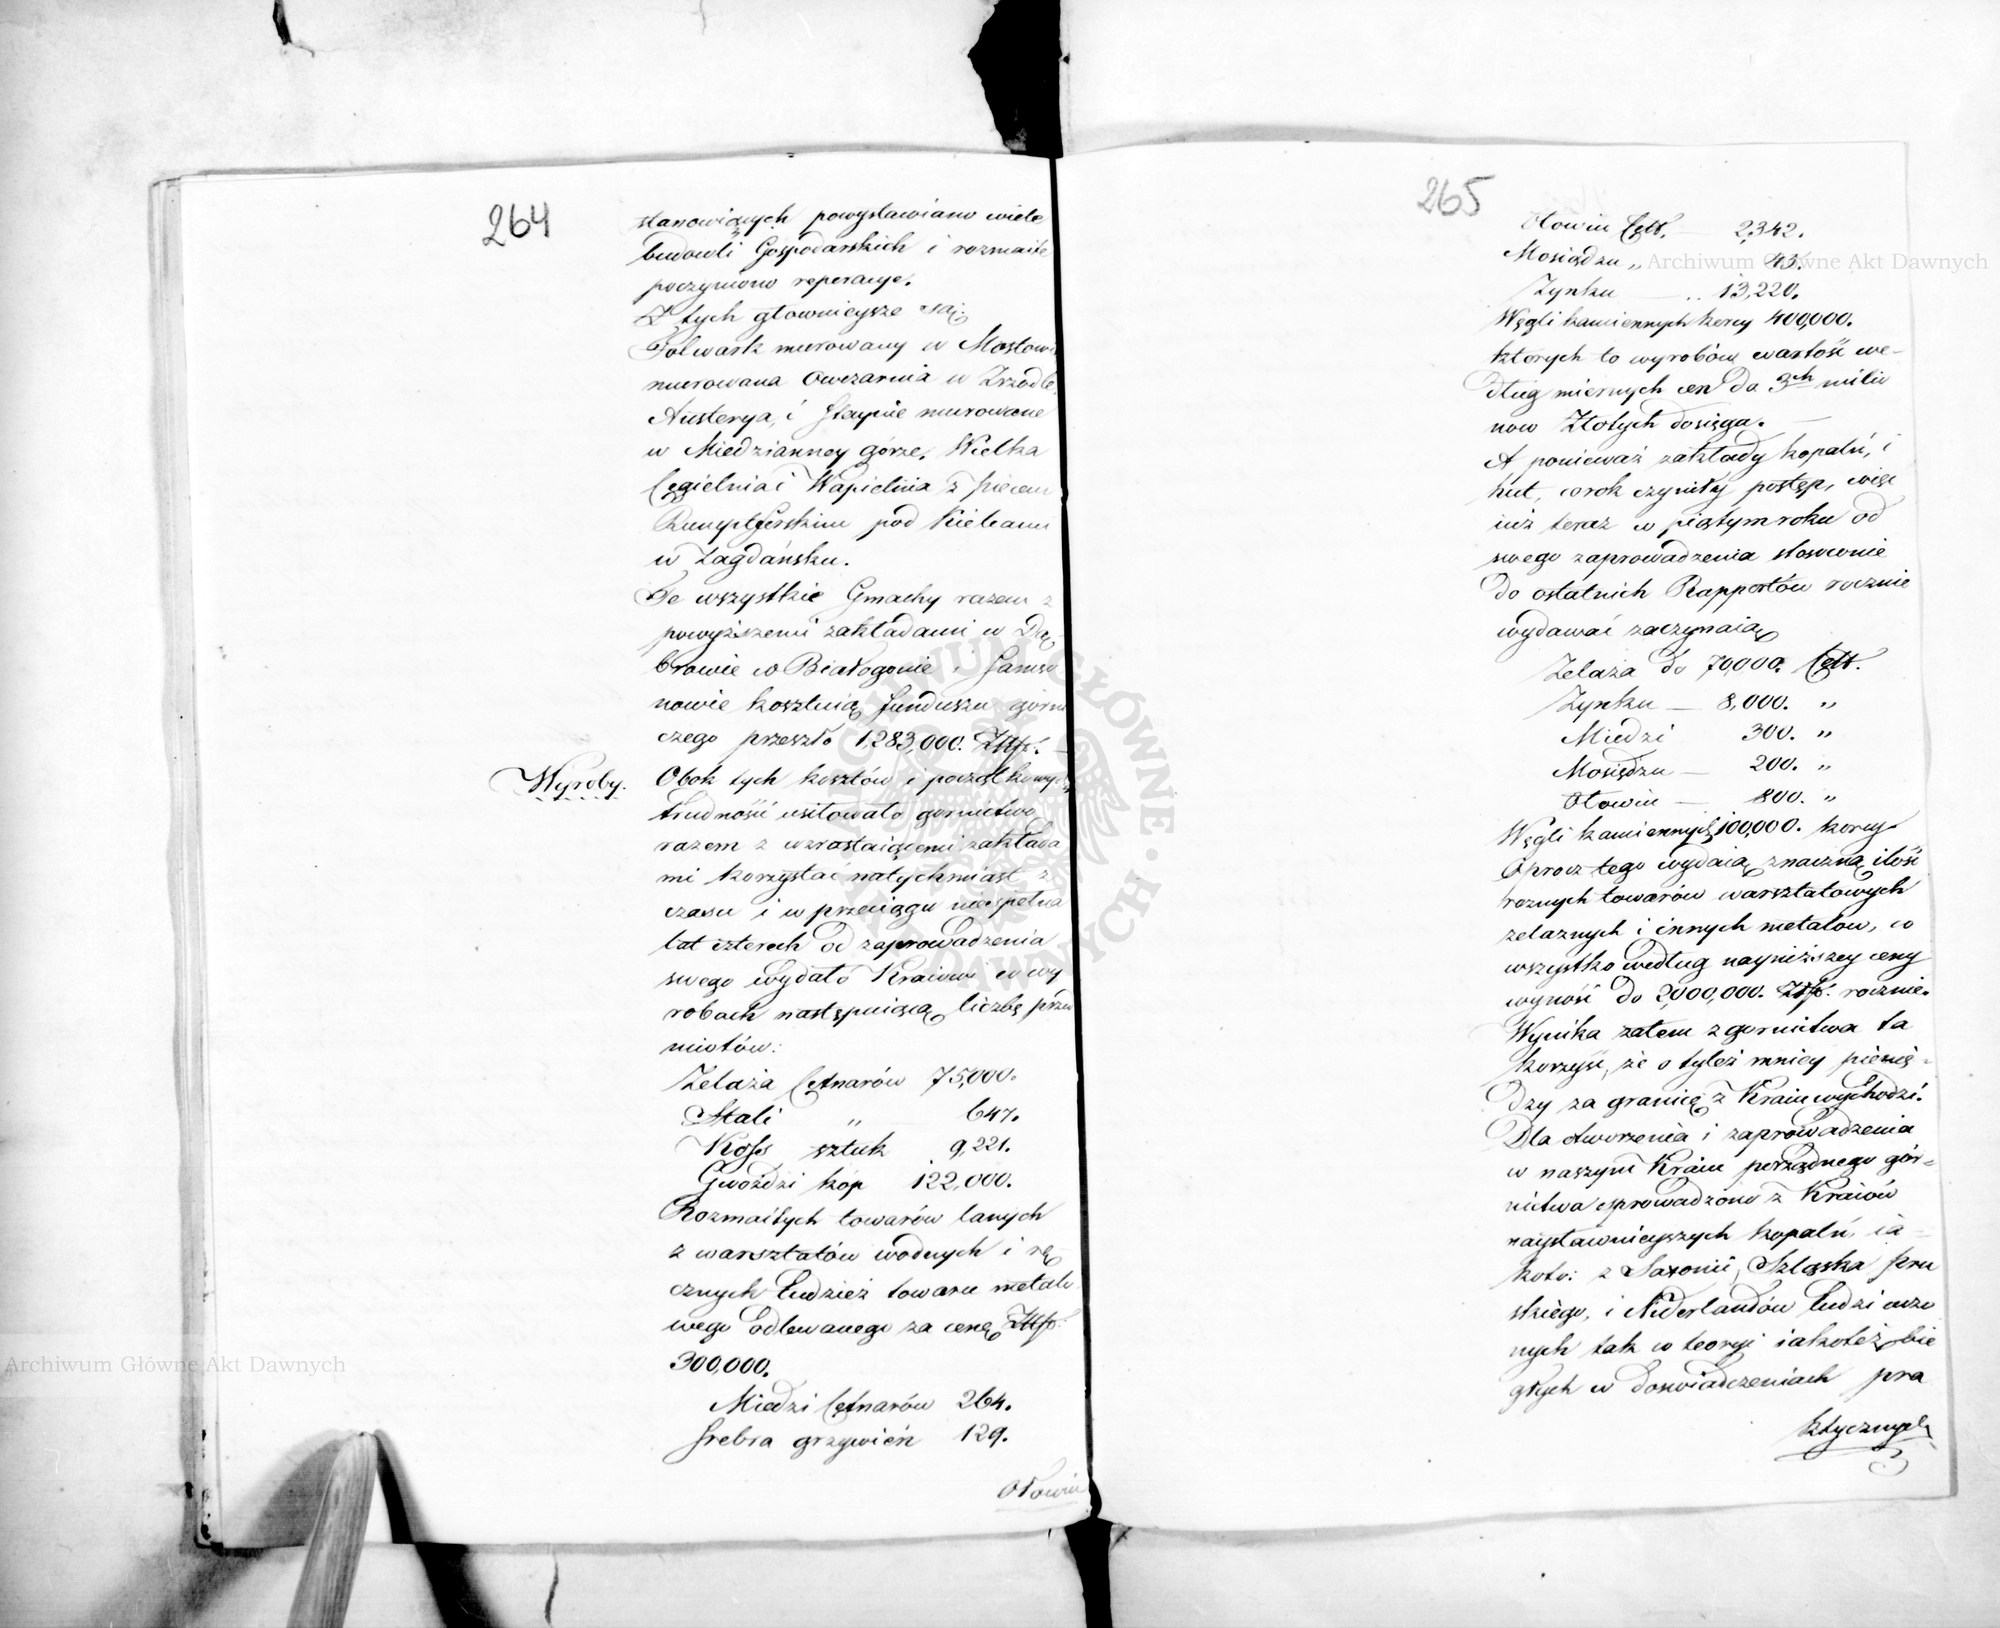 264
stanowiących powystawiano wiele
budowli Gospodarskich i rozmaite
poczyniono reperacye.
Z tych głownieysze są:
Folwark murowany w Mostow
murowana Owczarnia w Zrzodle
Austerya, i Staynie murowane
w Miedzianney górze. Wielka
Cęgielnia i Wapielnia z piecem
pod Kielcami
w Zagdańsku.
Te wszystkie Gmachy razem z
powyższemi zakładami w Dą
browie w Białogonie i Samso
nowie kosztuią funduszu górni
czego przeszło 1,283,000. Złtp. —
Wyroby.
Obok tych kosztów i początkowych
trudność usiłowało gornictwo
razem z wzrastaiącemi zakłada
mi korzystać natychmiast z
czasu i w przeciągu niespełna
lat czterech od zaprowadzenia
swego wydało Kraiowi w wy
robach następuiącą liczbę przed
miotów:
Zelaza Cętnarów 75,000.
Stali „ — 647.
Koss sztuk 9,221.
Gwoździ kóp 122,000.
Rozmaitych towarów lanych
z warsztatów wodnych i rę
cznych tudzież towaru metalo
wego odlewanego za cenę Złtp.
300,000.
Miedzi Cętnarów 264.
Srebra grzywień 129.
Ołowiu
265
Ołowiu Cętt. — 2,342.
Mosiądzu „ 45.
Zynku — .. 13,220.
Węgli kamiennych korcy 400,000.
których to wyrobów wartość we-
dług miernych cen do 3ch milio
now Złotych dosięga. —
A ponieważ zakłady kopalń, i
hut, corok czyniły postęp, więc
iuż teraz w piątym roku od
swego zaprowadzenia stosownie
do ostatnich Rapportów rocznie
wydawać zaczynaią
Zelaza do 70,000. Cętt.
Zynku — 8,000. „
Miedzi 300. „
Mosiądzu — 200. „
Ołowiu — 800. „
Węgli kamiennych 100,000. korcy.
Oprocz tego wydaią znaczną ilość
roznych towarów warsztatowych
zelaznych i innych metalow, co
wszystko według nayniższey ceny
wynosi do 2,000,000. Złtp. rocznie.
Wynika zatem z gornictwa ta
korzyść, że o tyleż mniey pienię-
dzy za granicę z Kraiu wychodzi.
Dla otworzenia i zaprowadzenia
w naszym Kraiu porządnego gór=
nictwa sprowadzono z Kraiów
naysławnieyszych kopalń, ia=
koto: z Saxonii, Szląska pru
skiego, i Niderlandów ludzi uczo
nych tak w teoryi iakoteż bie
głych w doswiadczeniach pra
ktycznych
Archiwum Główne Akt Dawnych
Archiwum Główne Akt Dawnych
ARCHIWUM GŁÓWNE AKT DAWNYCH